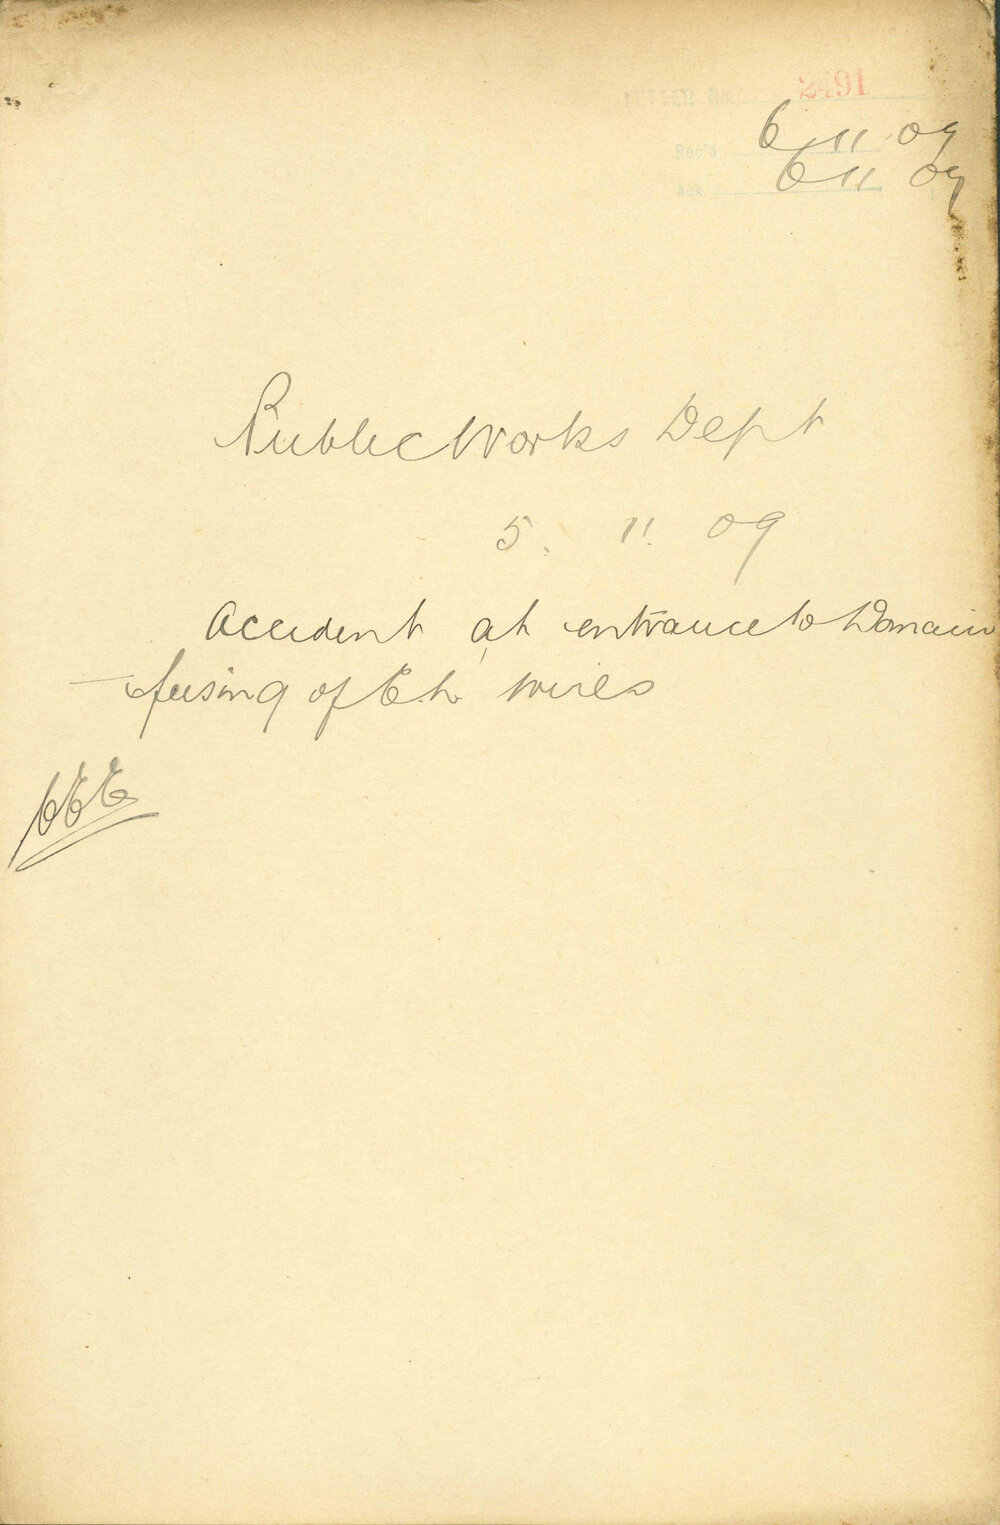 LETTER No. 2491
Rec'd 6 11 09
Ack. 6 11 09
Public Works Dept
5. 11. 09
Accident at entrance to Domain
- fusing of E.L. wires